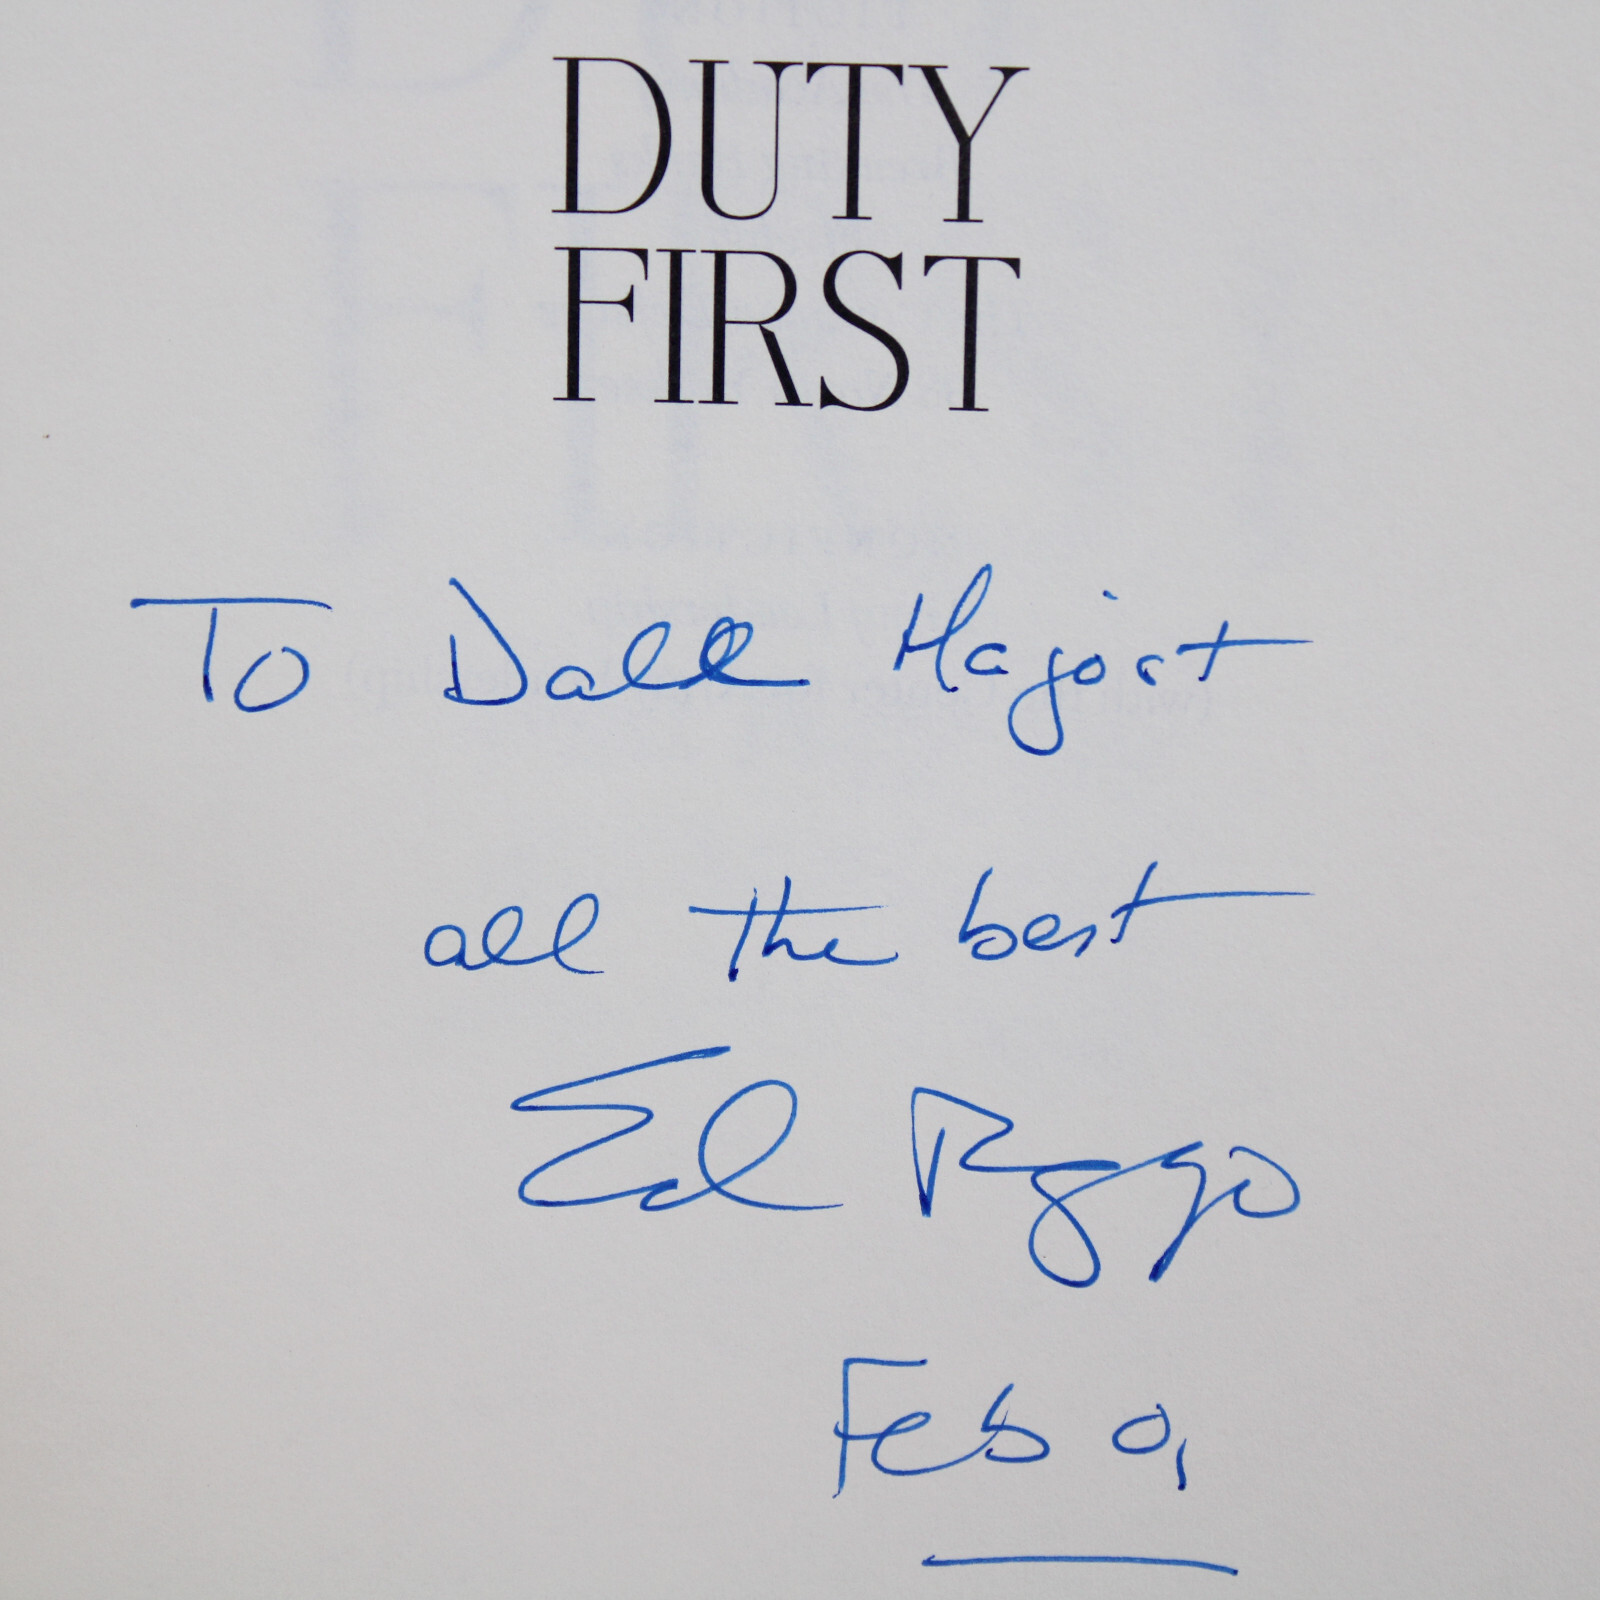 DUTY
FIRST
To Dale Hajost
all the best
Ed Ruggero
Feb 01